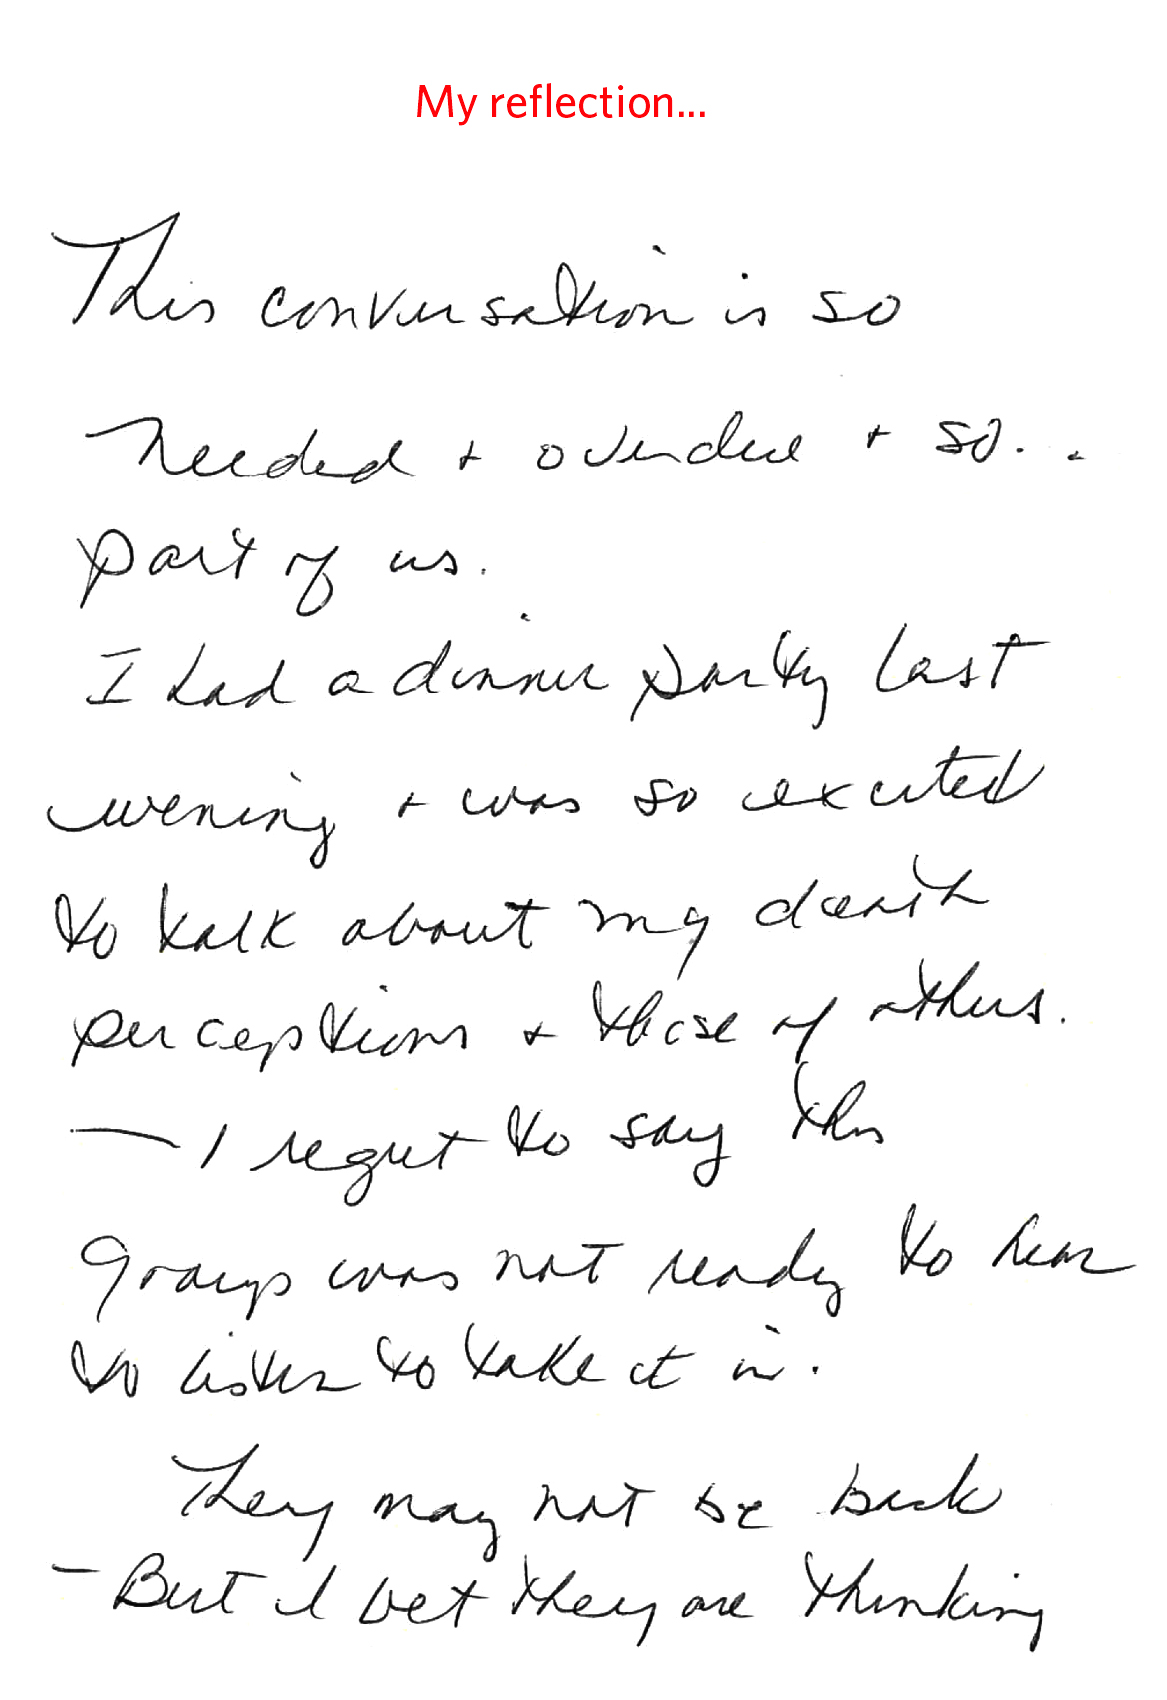 My reflection...
This conversation is so
needed + overdue + so...
part of us.
I had a dinner party last
evening + was so excited
to talk about my death
perceptions + those of others.
— I regret to say this
group was not ready to hear
to listen to take it in.
They may not be back
- But I bet they are thinking